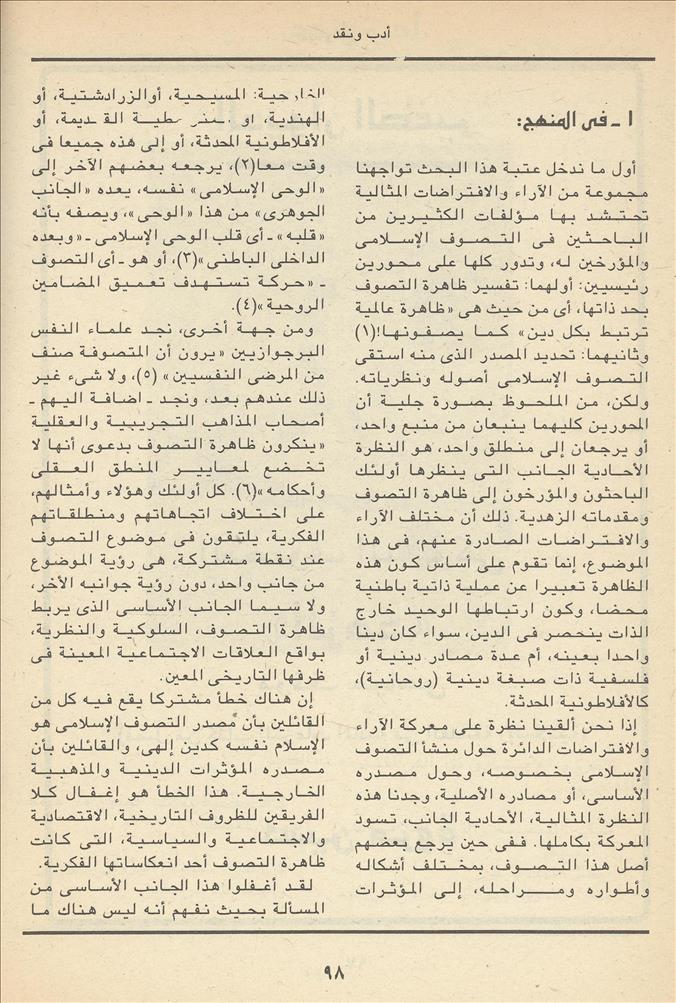 أدب ونقد
١ - فى المنهج:
أول ما ندخل عتبة هذا البحث تواجهنا
مجموعة من الآراء والافتراضات المثالية
تحتشد بها مؤلفات الكثيرين من
الباحثين فى التصوف الإسلامى
والمؤرخين له، وتدور كلها على محورين
رئيسيين: أولهما: تفسير ظاهرة التصوف
بحد ذاتها، أى من حيث هى «ظاهرة عالمية
ترتبط بكل دين» كما يصفونها!(١)
وثانيهما: تحديد المصدر الذى منه استقى
التصوف الإسلامى أصوله ونظرياته.
ولكن، من الملحوظ بصورة جلية أن
المحورين كليهما ينبعان من منبع واحد،
أو يرجعان إلى منطلق واحد، هو النظرة
الأحادية الجانب التى ينظرها أولئك
الباحثون والمؤرخون إلى ظاهرة التصوف
ومقدماته الزهدية. ذلك أن مختلف الآراء
والافتراضات الصادرة عنهم، فى هذا
الموضوع، إنما تقوم على أساس كون هذه
الظاهرة تعبيرا عن عملية ذاتية باطنية
محضا، وكون ارتباطها الوحيد خارج
الذات ينحصر فى الدين، سواء كان دينا
واحدا بعينه، أم عدة مصادر دينية أو
فلسفية ذات صبغة دينية (روحانية)،
كالأفلاطونية المحدثة.
إذا نحن ألقينا نظرة على معركة الآراء
والافتراضات الدائرة حول منشأ التصوف
الإسلامى بخصوصه، وحول مصدره
الأساسى، أو مصادره الأصلية، وجدنا هذه
النظرة المثالية، الأحادية الجانب، تسود
المعركة بكاملها. ففى حين يرجع بعضهم
أصل هذا التصوف، بمختلف أشكاله
وأطواره ومراحله، إلى المؤثرات
الخارجية: المسيحية، أوالزرادشتية، أو
الهندية، أو القديمة، أو
الأفلاطونية المحدثة، أو إلى هذه جميعا فى
وقت معا(٢)، يرجعه بعضهم الآخر إلى
«الوحى الإسلامى» نفسه، يعده «الجانب
الجوهرى» من هذا «الوحى»، ويصفه بأنه
«قلبه» - أى قلب الوحى الإسلامى - «وبعده
الداخلى الباطنى»(٣)، أو هو - أى التصوف
- «حركة تستهدف تعميق المضامين
الروحية»(٤).
ومن جهة أخرى، نجد علماء النفس
البرجوازيين «يرون أن المتصوفة صنف
من المرضى النفسيين» (٥)، ولا شىء غير
ذلك عندهم بعد، ونجد - اضافة اليهم -
أصحاب المذاهب التجريبية والعقلية
«ينكرون ظاهرة التصوف بدعوى أنها لا
تخضع لمعايير المنطق العقلى
وأحكامه»(٦). كل أولئك وهؤلاء وأمثالهم،
على اختلاف اتجاهاتهم ومنطلقاتهم
الفكرية، يلتقون فى موضوع التصوف
عند نقطة مشتركة، هى رؤية الموضوع
من جانب واحد، دون رؤية جوانبه الأخر،
ولا سيما الجانب الأساسى الذى يربط
ظاهرة التصوف، السلوكية والنظرية،
بواقع العلاقات الاجتماعية المعينة فى
ظرفها التاريخى المعين.
إن هناك خطأ مشتركا يقع فيه كل من
القائلين بأن مصدر التصوف الإسلامى هو
الإسلام نفسه كدين إلهى، والقائلين بأن
مصدره المؤثرات الدينية والمذهبية
الخارجية. هذا الخطأ هو إغفال كلا
الفريقين للظروف التاريخية، الاقتصادية
والاجتماعية والسياسية، التى كانت
ظاهرة التصوف أحد انعكاساتها الفكرية.
لقد أغفلوا هذا الجانب الأساسى من
المسألة بحيث نفهم أنه ليس هناك ما
٩٨